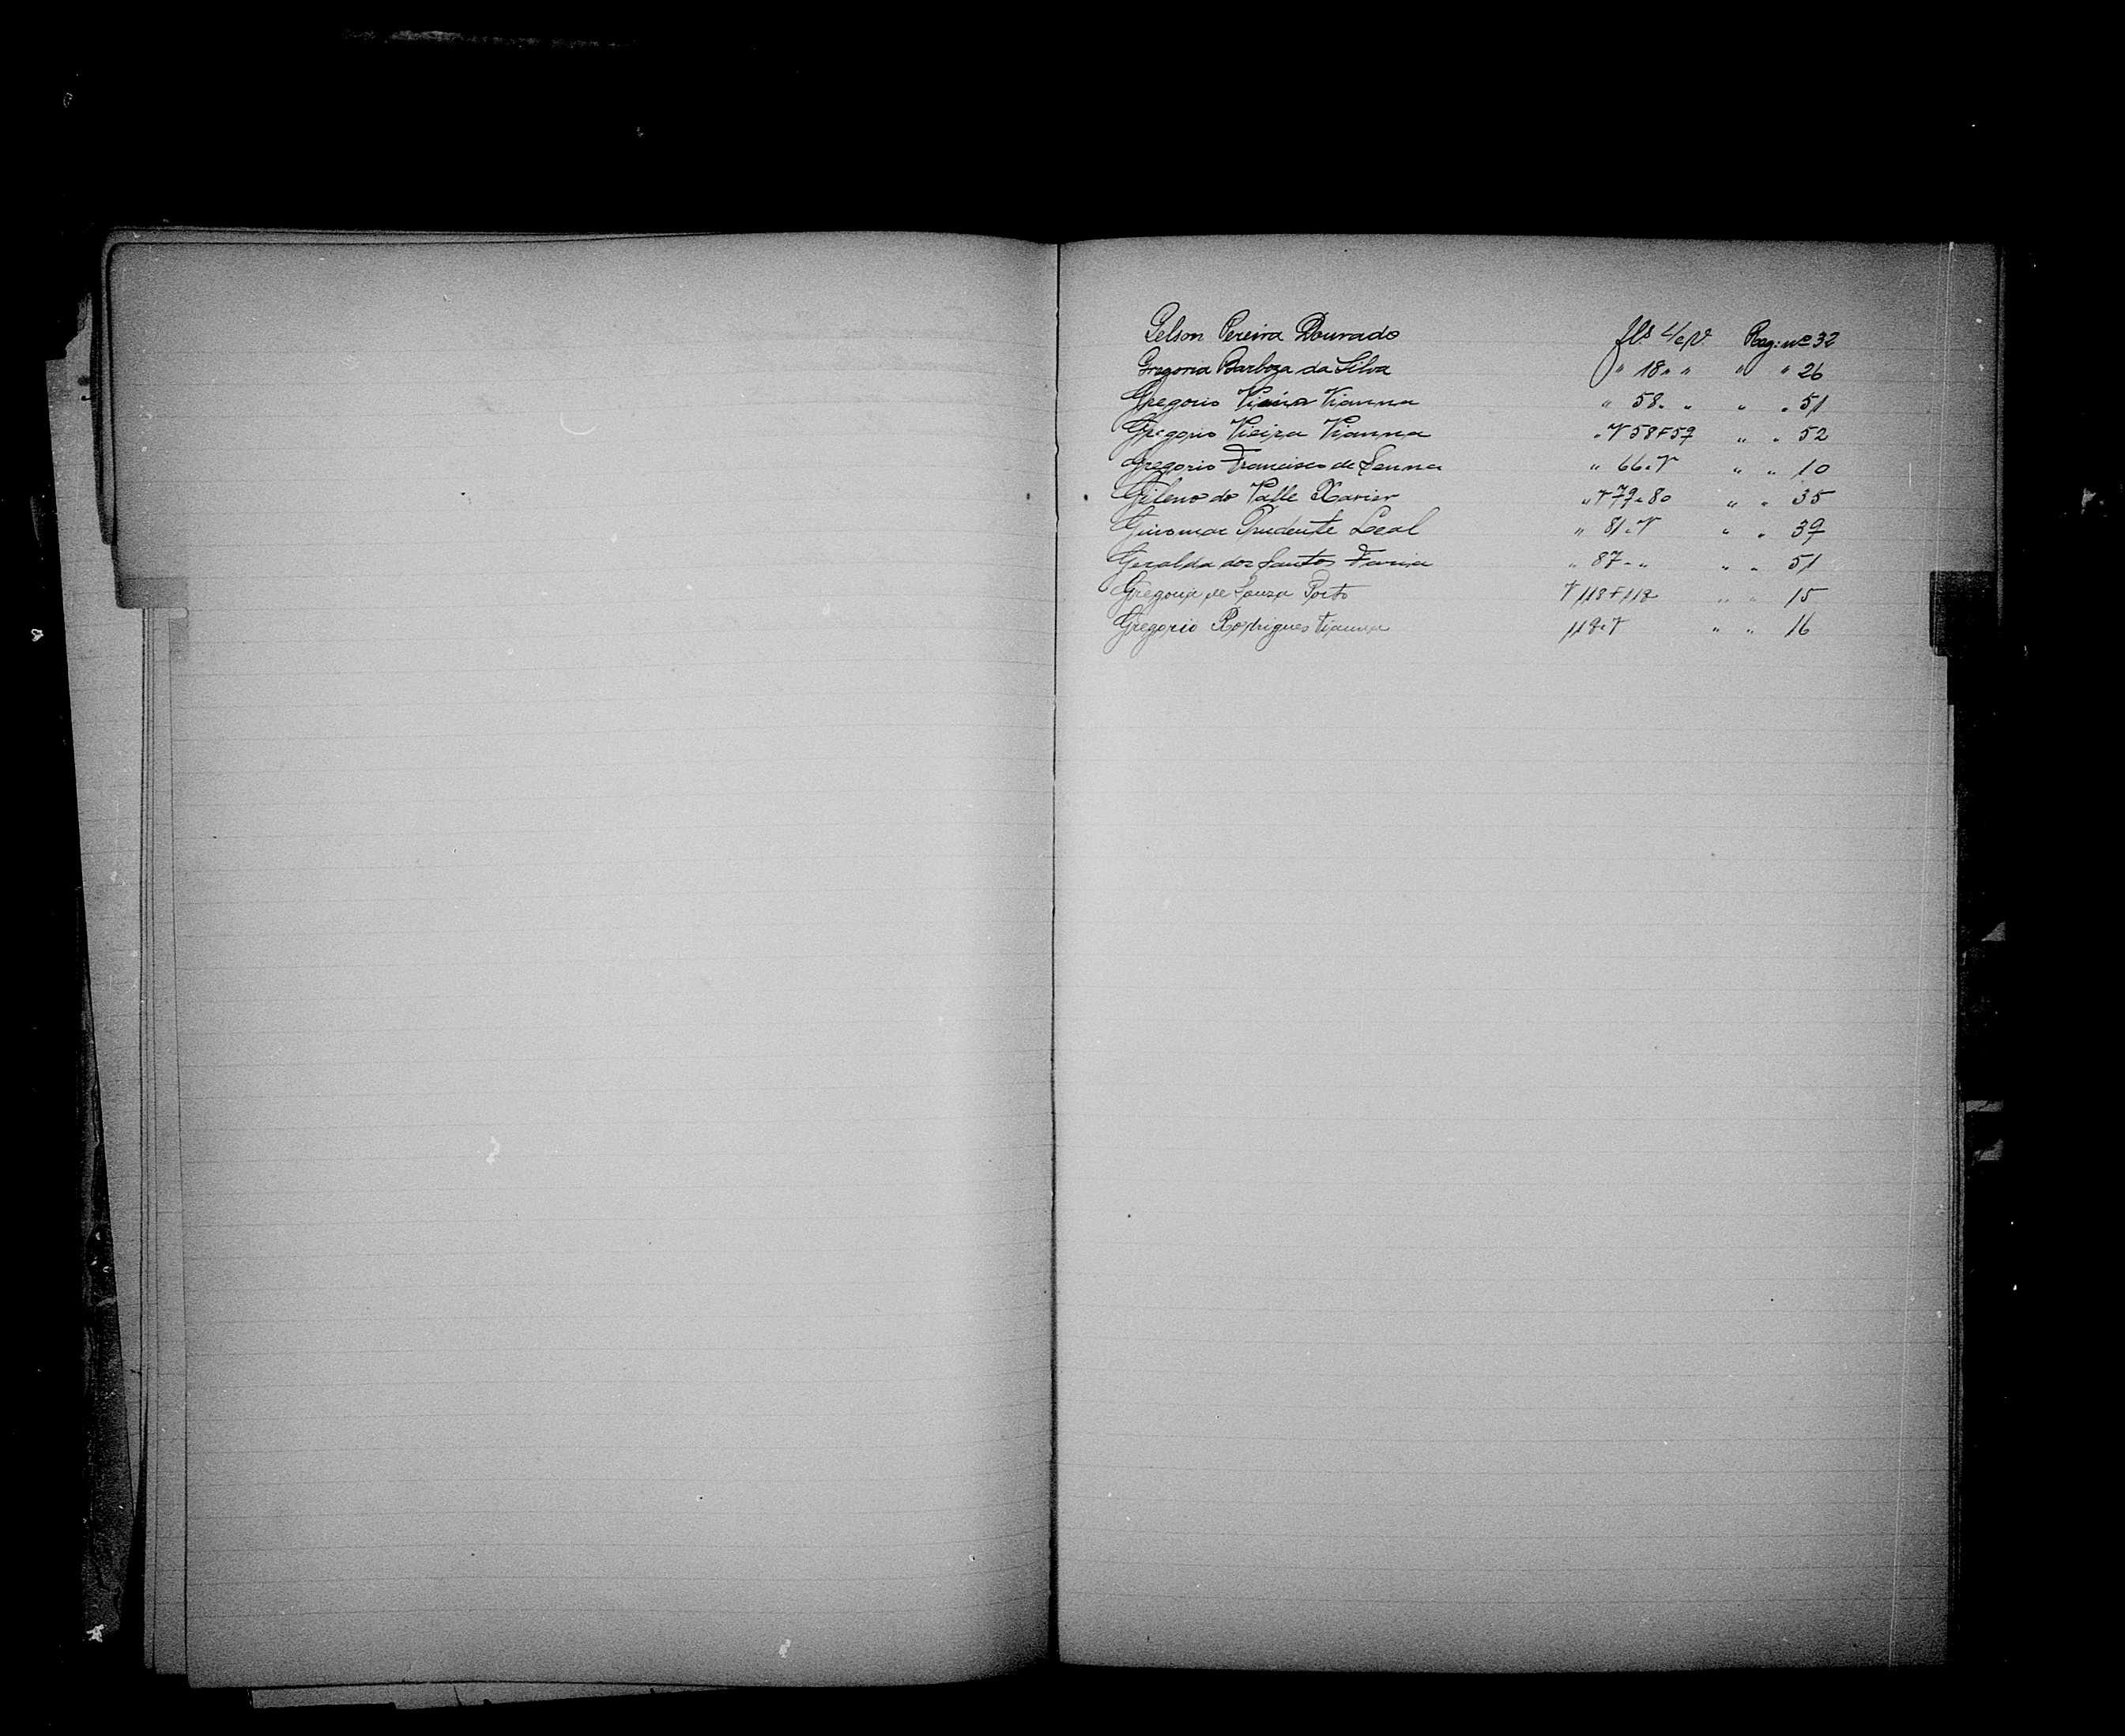 Gelson Pereira Dourado fls. 4/e V. Reg: nº 32
Gregoria Barboza da Silva " 18 " " " " 26
Gregorio Vieira Vianna " 58 " " " " 51
Gregorio Vieira Vianna " V 58 F 59 " " 52
Gregorio Francisco de Senna " 66 e V " " 10
Gileno do Valle Xavier " V 79 e 80 " " 35
Guiomar Prudente Leal " 81 e V " " 39
Geralda dos Santos Faria " 87 " " " " 51
Gregoria de Souza Porto V 118 F 119 " " 15
Gregorio Rodrigues Vianna 119 e V " " 16